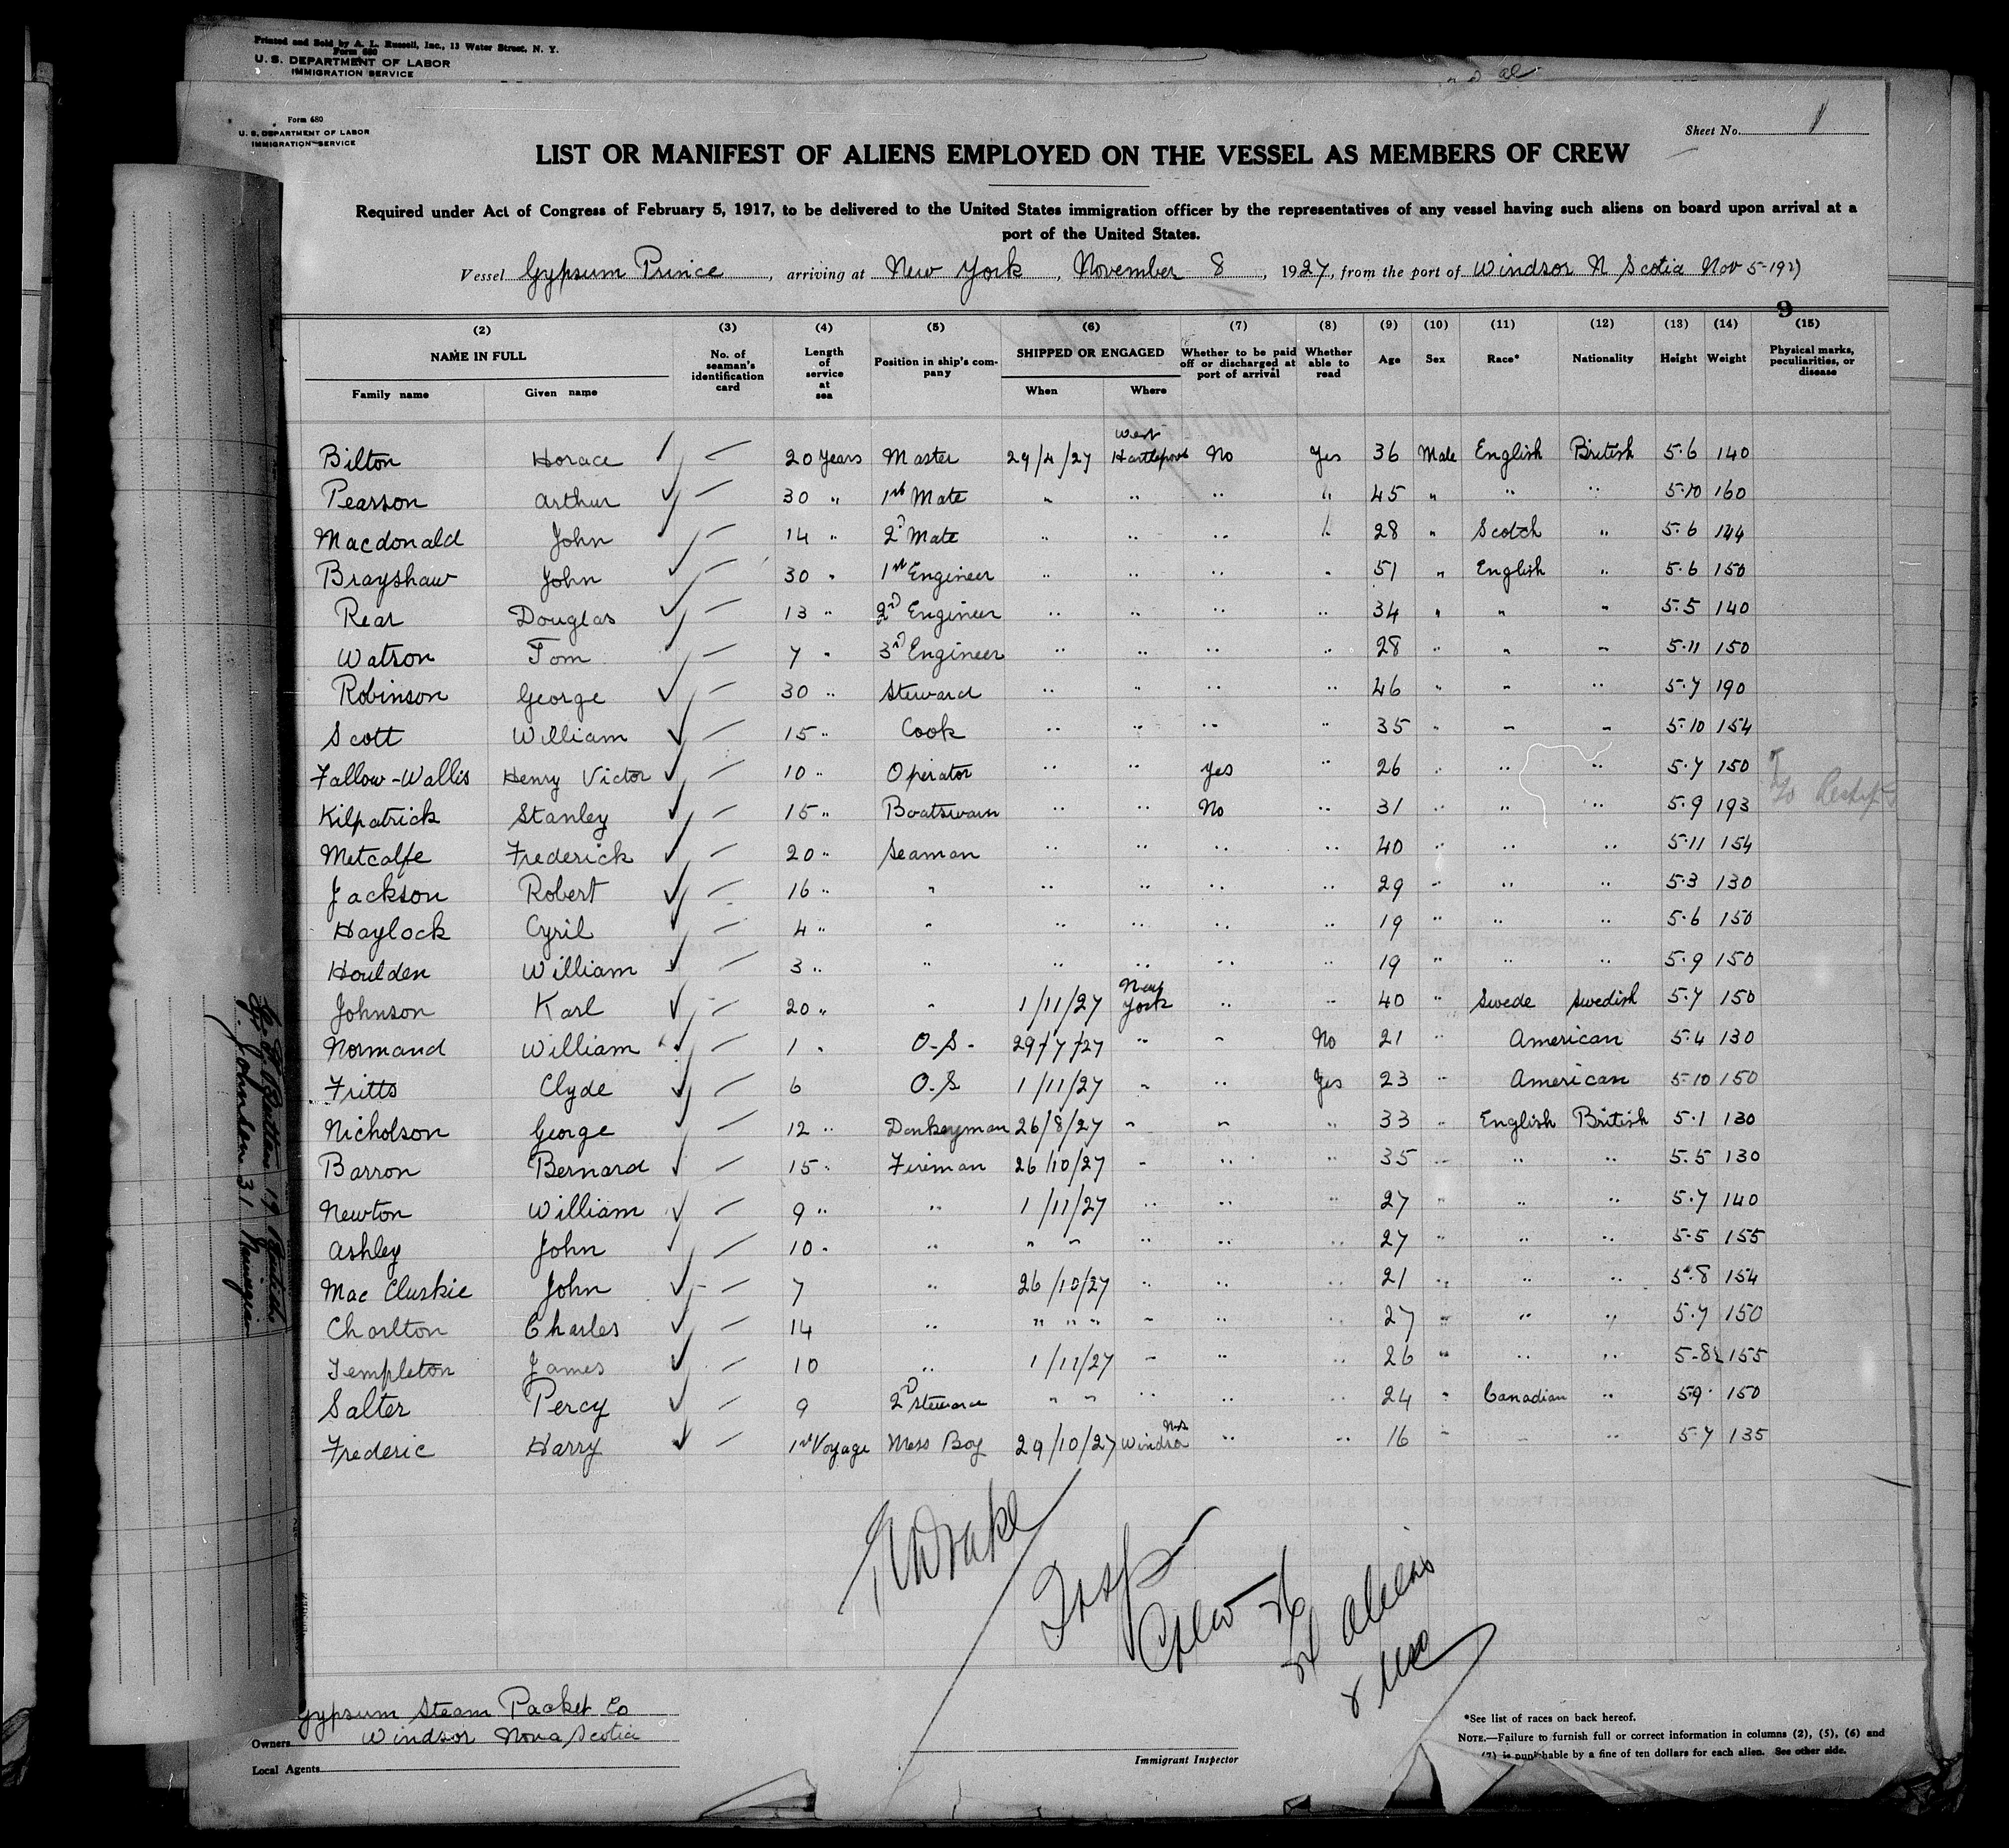 Printed and Sold by A. L. Russell, Inc., 13 Water Street, N. Y.
Form 680
U. S. DEPARTMENT OF LABOR
IMMIGRATION SERVICE
Form 680
U. S. DEPARTMENT OF LABOR
IMMIGRATION SERVICE
Sheet No. 1
LIST OR MANIFEST OF ALIENS EMPLOYED ON THE VESSEL AS MEMBERS OF CREW
Required under Act of Congress of February 5, 1917, to be delivered to the United States immigration officer by the representatives of any vessel having such aliens on board upon arrival at a
port of the United States.
Vessel Gypsum Prince, arriving at New York, November 8, 1927, from the port of Windsor N Scotia Nov 5-1927
9
(2) (3) (4) (5) (6) (7) (8) (9) (10) (11) (12) (13) (14) (15)
NAME IN FULL No. of seaman's identification card Length of service at sea Position in ship's company SHIPPED OR ENGAGED Whether to be paid off or discharged at port of arrival Whether able to read Age Sex Race* Nationality Height Weight Physical marks, peculiarities, or disease
Family name Given name When Where
Bilton Horace — 20 years Master 29/4/27 West Hartlepool No Yes 36 Male English British 5.6 140
Pearson Arthur — 30 " 1st Mate " " " " 45 " " " 5.10 160
Macdonald John — 14 " 2d Mate " " " " 28 " Scotch " 5.6 144
Brayshaw John — 30 " 1st Engineer " " " " 51 " English " 5.6 150
Rear Douglas — 13 " 2nd Engineer " " " " 34 " " " 5.5 140
Watson Tom — 7 " 3rd Engineer " " " " 28 " " " 5.11 150
Robinson George — 30 " Steward " " " " 46 " " " 5.7 190
Scott William — 15 " Cook " " " " 35 " " " 5.10 154
Fallow-Wallis Henry Victor — 10 " Operator " " Yes " 26 " " " 5.7 150
Kilpatrick Stanley — 15 " Boatswain " " No " 31 " " " 5.9 193
Metcalfe Frederick — 20 " Seaman " " " " 40 " " " 5.11 154
Jackson Robert — 16 " " " " " " 29 " " " 5.3 130
Haylock Cyril — 4 " " " " " " 19 " " " 5.6 150
Houlden William — 3 " " " " " " 19 " " " 5.9 150
Johnson Karl — 20 " " 1/11/27 New York " " 40 " Swede Swedish 5.7 150
Normand William — 1 " O.S. 29/7/27 " " No 21 " American 5.4 130
Fritts Clyde — 6 O.S 1/11/27 " " Yes 23 " American 5.10 150
Nicholson George — 12 " Donkeyman 26/8/27 " " " 33 " English British 5.1 130
Barron Bernard — 15 " Fireman 26/10/27 " " " 35 " " " 5.5 130
Newton William — 9 " " 1/11/27 " " " 27 " " " 5.7 140
Ashley John — 10 " " " " " " " 27 " " " 5.5 155
Mac Cluskie John — 7 " 26/10/27 " " " 21 " " " 5.8 154
Charlton Charles — 14 " " " " " " " 27 " " " 5.7 150
Templeton James — 10 " 1/11/27 " " " 26 " " " 5-8½ 155
Salter Percy — 9 2d Steward " " " " " 24 " Canadian " 5.9 150
Frederic Harry — 1st Voyage Mess Boy 29/10/27 Windsor N.S " " 16 " " " 5.7 135
Drake
Insp
Crew 26
24 aliens
2 USC
Gypsum Steam Packet Co
Owners Windsor Nova Scotia
Local Agents
Immigrant Inspector
*See list of races on back hereof.
NOTE.—Failure to furnish full or correct information in columns (2), (5), (6) and
(7) is punishable by a fine of ten dollars for each alien. See other side.